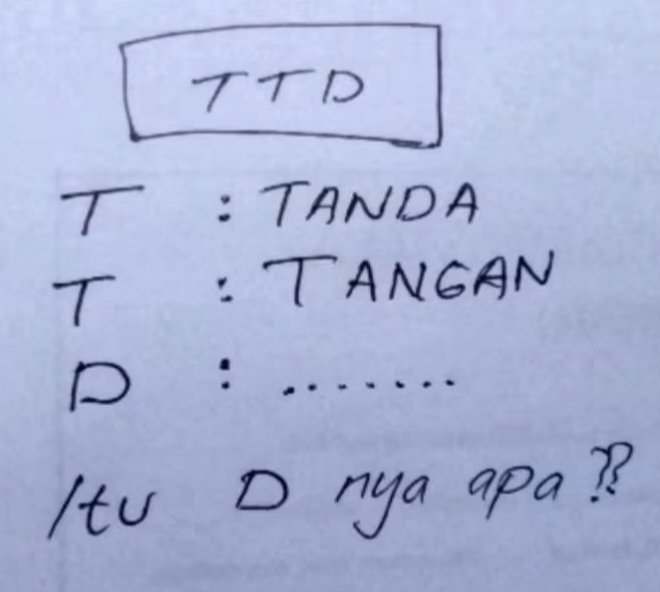 TTD
T : TANDA
T : TANGAN
D : .......
Itu D nya apa??